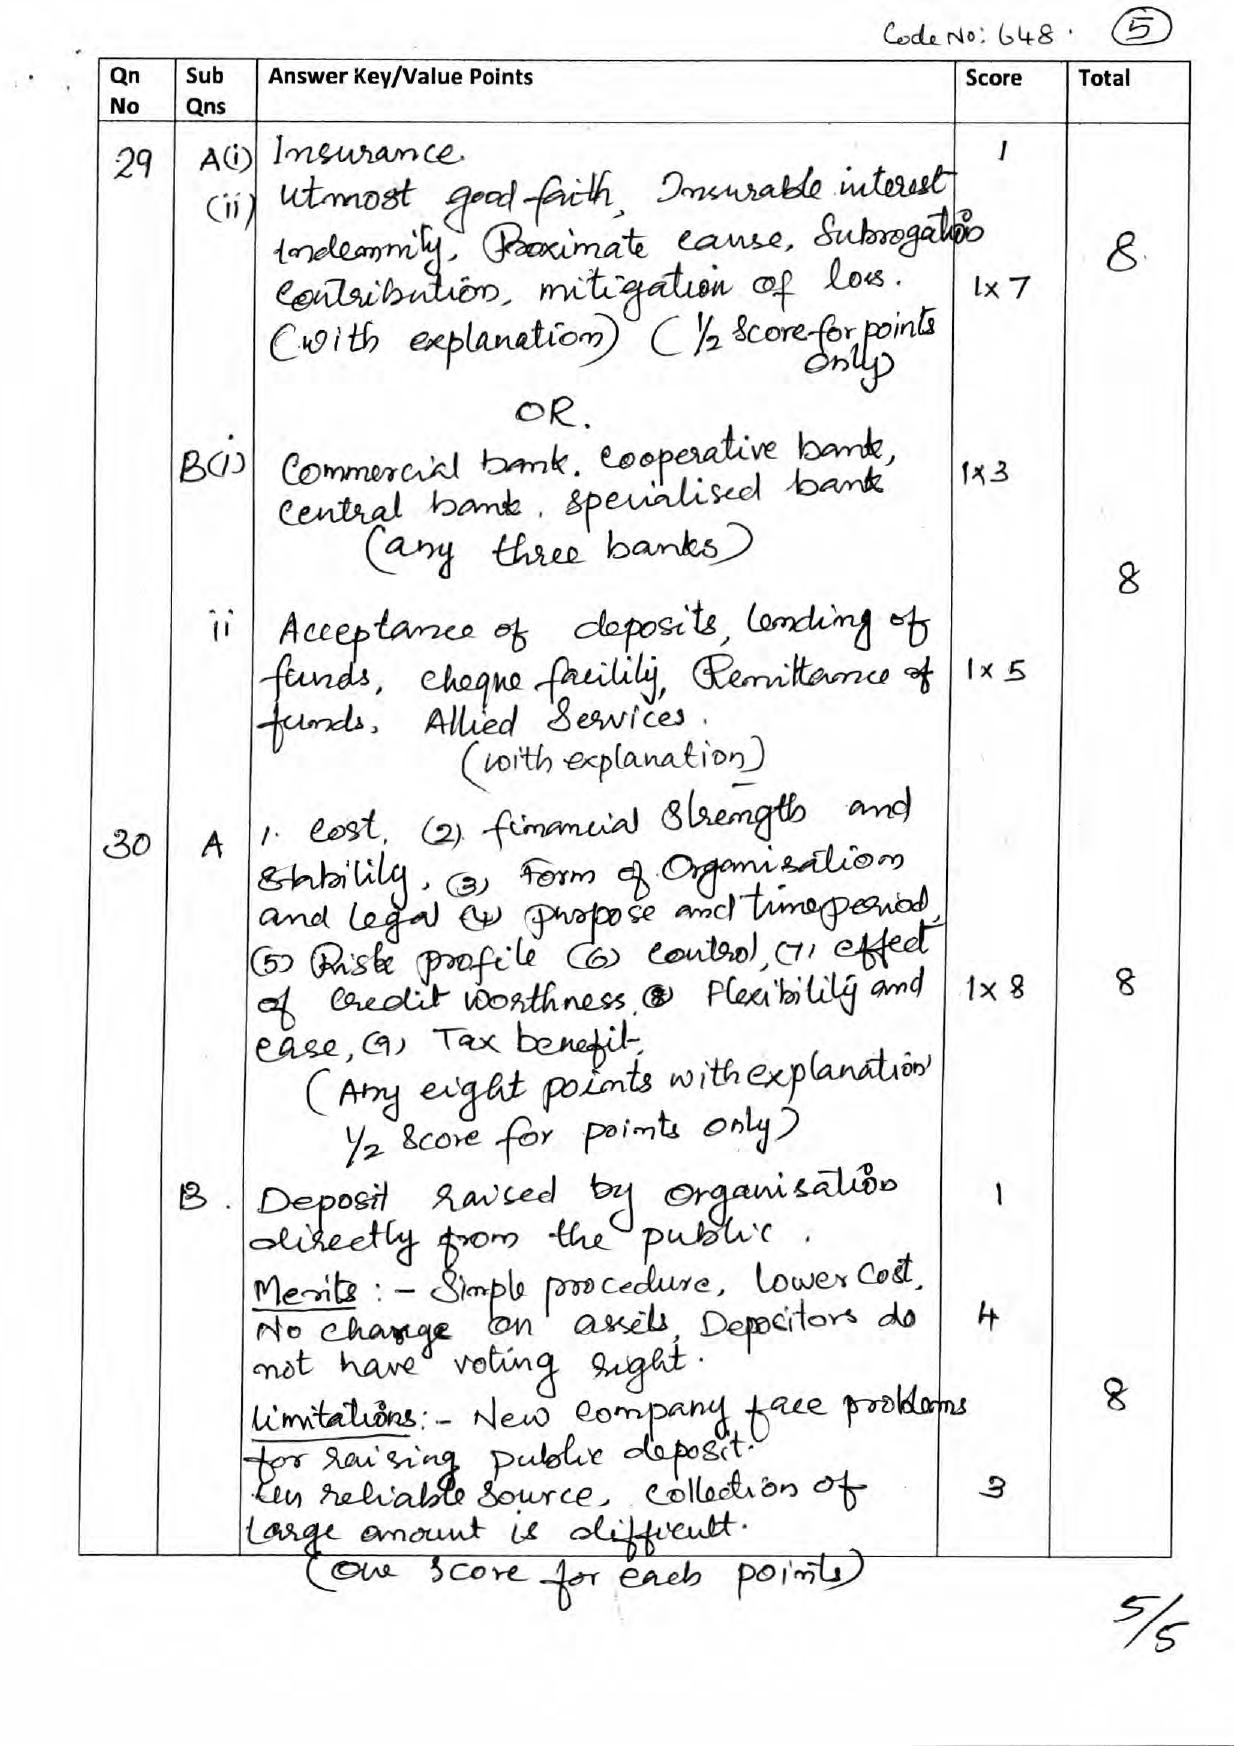 Code No: 648. 5
Qn No Sub Qns Answer Key/Value Points Score Total
29 A(i) Insurance. 1
(ii) Utmost good faith, Insurable interest
Indemnity, Proximate cause, Subrogation 8.
Contribution, mitigation of loss. 1x7
(with explanation) (1/2 Score for points
only)
OR.
B(i) Commercial bank. Cooperative bank, 1x3
Central bank. specialised bank
(any three banks)
8
ii Acceptance of deposits, lending of
funds, cheque facility, Remittance of 1x5
funds, Allied Services.
(with explanation)
30 A 1. Cost, (2) financial Strength and
Stability, (3) Form of Organisation
and legal (4) purpose and time period,
(5) Risk profile (6) control, (7) effect
of credit worthness, (8) Flexibility and 1x8 8
ease, (9) Tax benefit.
(Any eight points with explanation
1/2 Score for points only)
B. Deposit raised by organisation 1
directly from the public.
Merits :- Simple procedure, lower cost,
No charge on assets, Depositors do 4
not have voting right.
Limitations:- New company face problems 8
for raising public deposit.
Un reliable source, collection of 3
large amount is difficult.
(One score for each points)
5/5